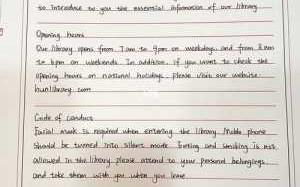 to introduce to you the essential information of our library.
Opening hours
Our library opens from 7am to 9pm on weekdays, and from 8am
to 6pm on weekends. In addition, if you want to check the
opening hours on national holidays, please visit our website
hunlibrary.com
Code of conduct
Facial mask is required when entering the library. Mobile phone
should be turned into silent mode. Eating and smoking is not
allowed in the library. please attend to your personal belongings,
and take them with you when you leave